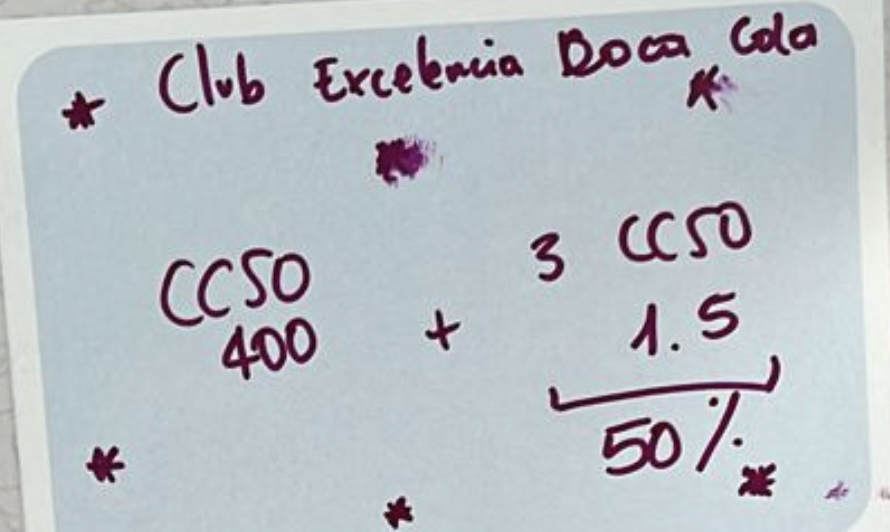 * Club Excelencia Boca Cola *
CC50 + 3 CC50
400 1.5
50%